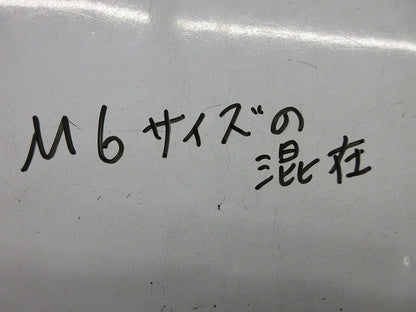 M6サイズの
混在